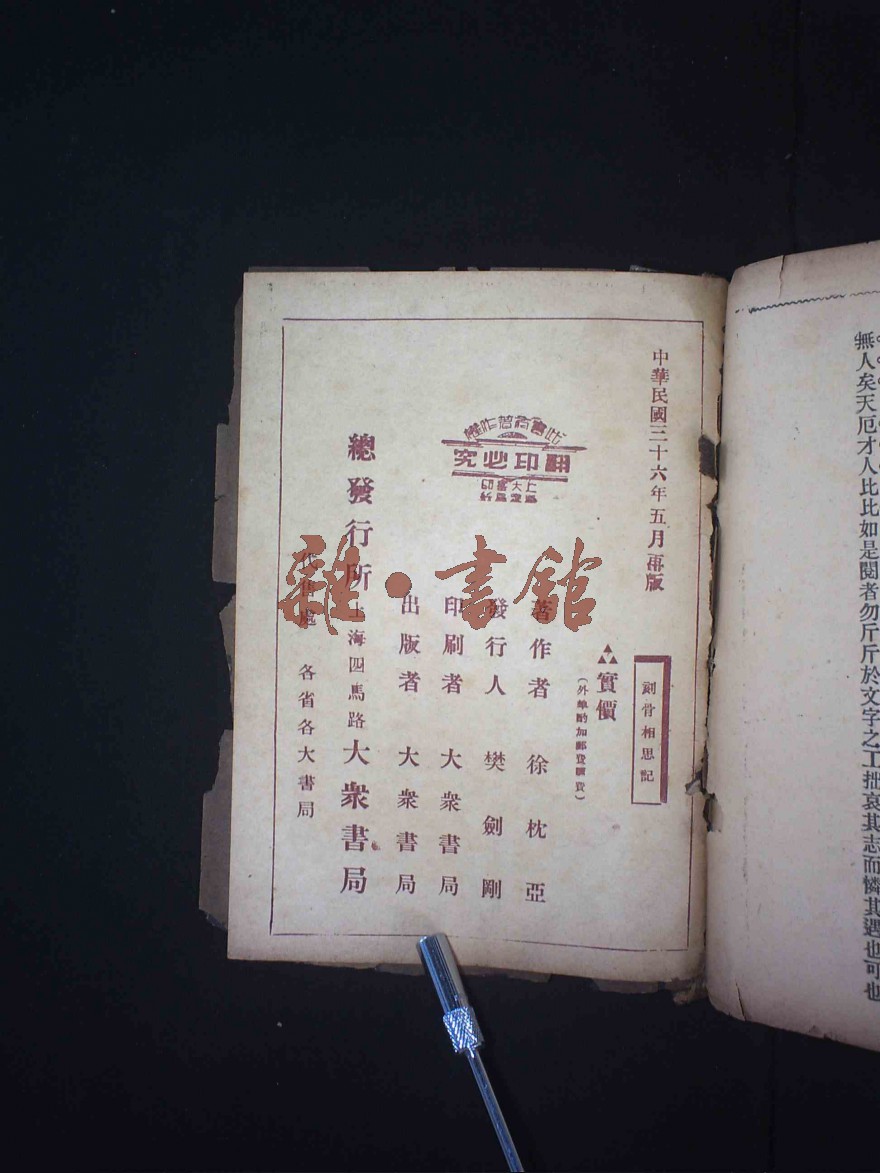 中華民國三十六年五月再版
刻骨相思記
實價
(外埠酌加郵費匯費)
著作者 徐枕亞
發行人 樊劍剛
印刷者 大衆書局
出版者 大衆書局
總發行所 上海四馬路大衆書局
代售處 各省各大書局
此書有著作權
翻印必究
上海大衆書局印行
雜·書館
無人矣天厄才人比比如是閱者勿斤斤於文字之工拙哀其志而憐其遇也可也